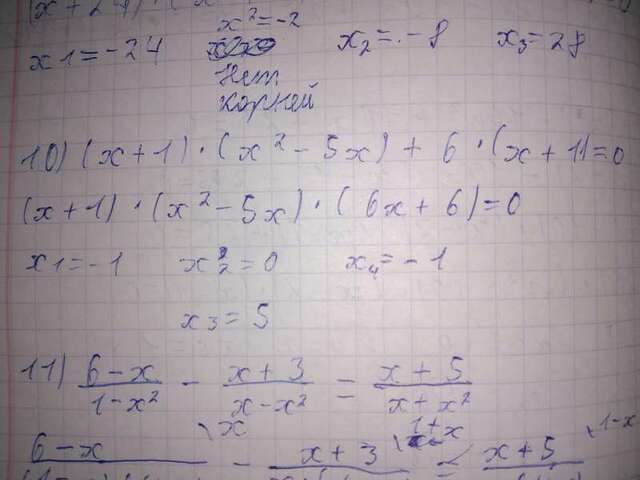 x² = -2
x1 = -24 x₂ = -8 x₃ = 28
Нет
корней
10) (x+1)·(x²-5x)+6·(x+1)=0
(x+1)·(x²-5x)·(6x+6)=0
x1=-1 x2=0 x₄=-1
x3=5
11) 6-x / 1-x² - x+3 / x-x² = x+5 / x+x²
6-x \x - x+3 \1+x = x+5 \1-x